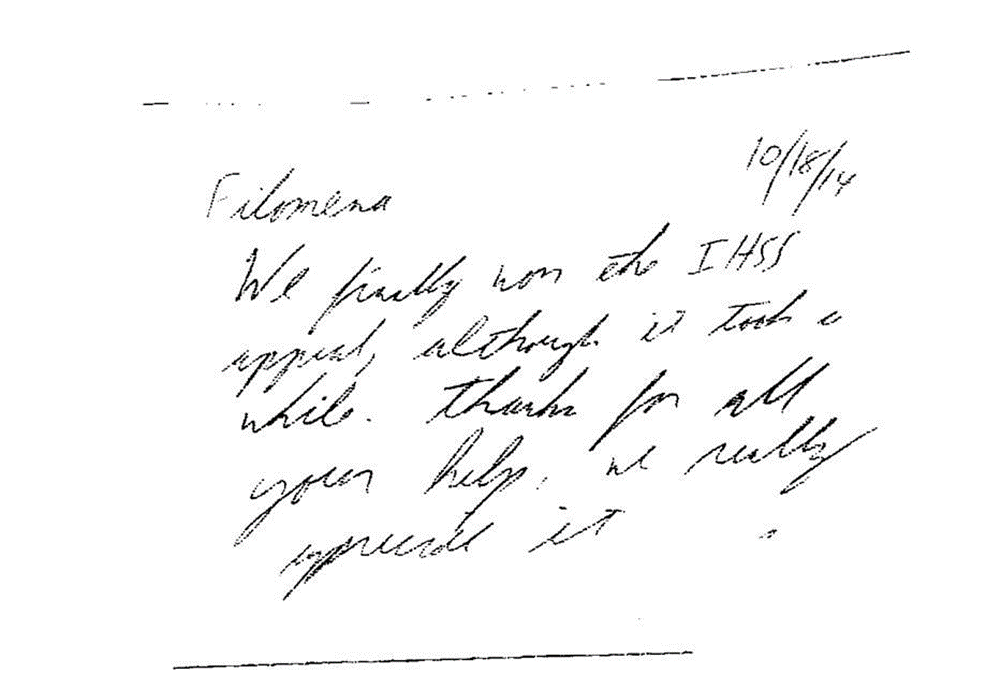 10/18/14
Filomena
We finally won the IHSS
appeal, although it took a
while. Thanks for all
your help, we really
appreciate it